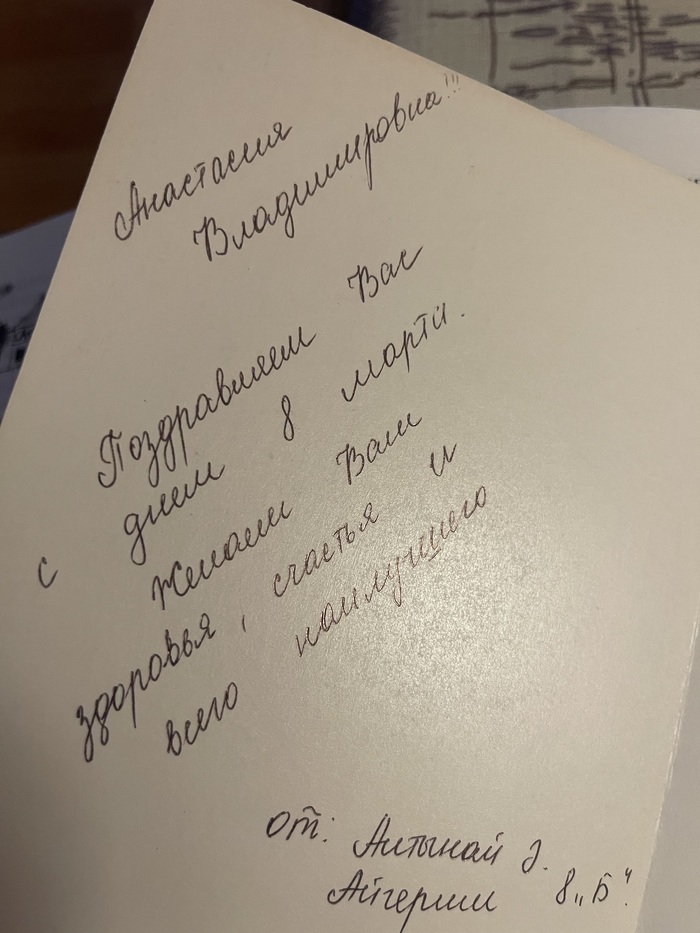 Анастасия
Владимировна!!!
Поздравляем Вас
с днем 8 марта.
Желаем Вам
здоровья, счастья и
всего наилучшего
от: Алтынай Э.
Айгерим 8 „Б“.